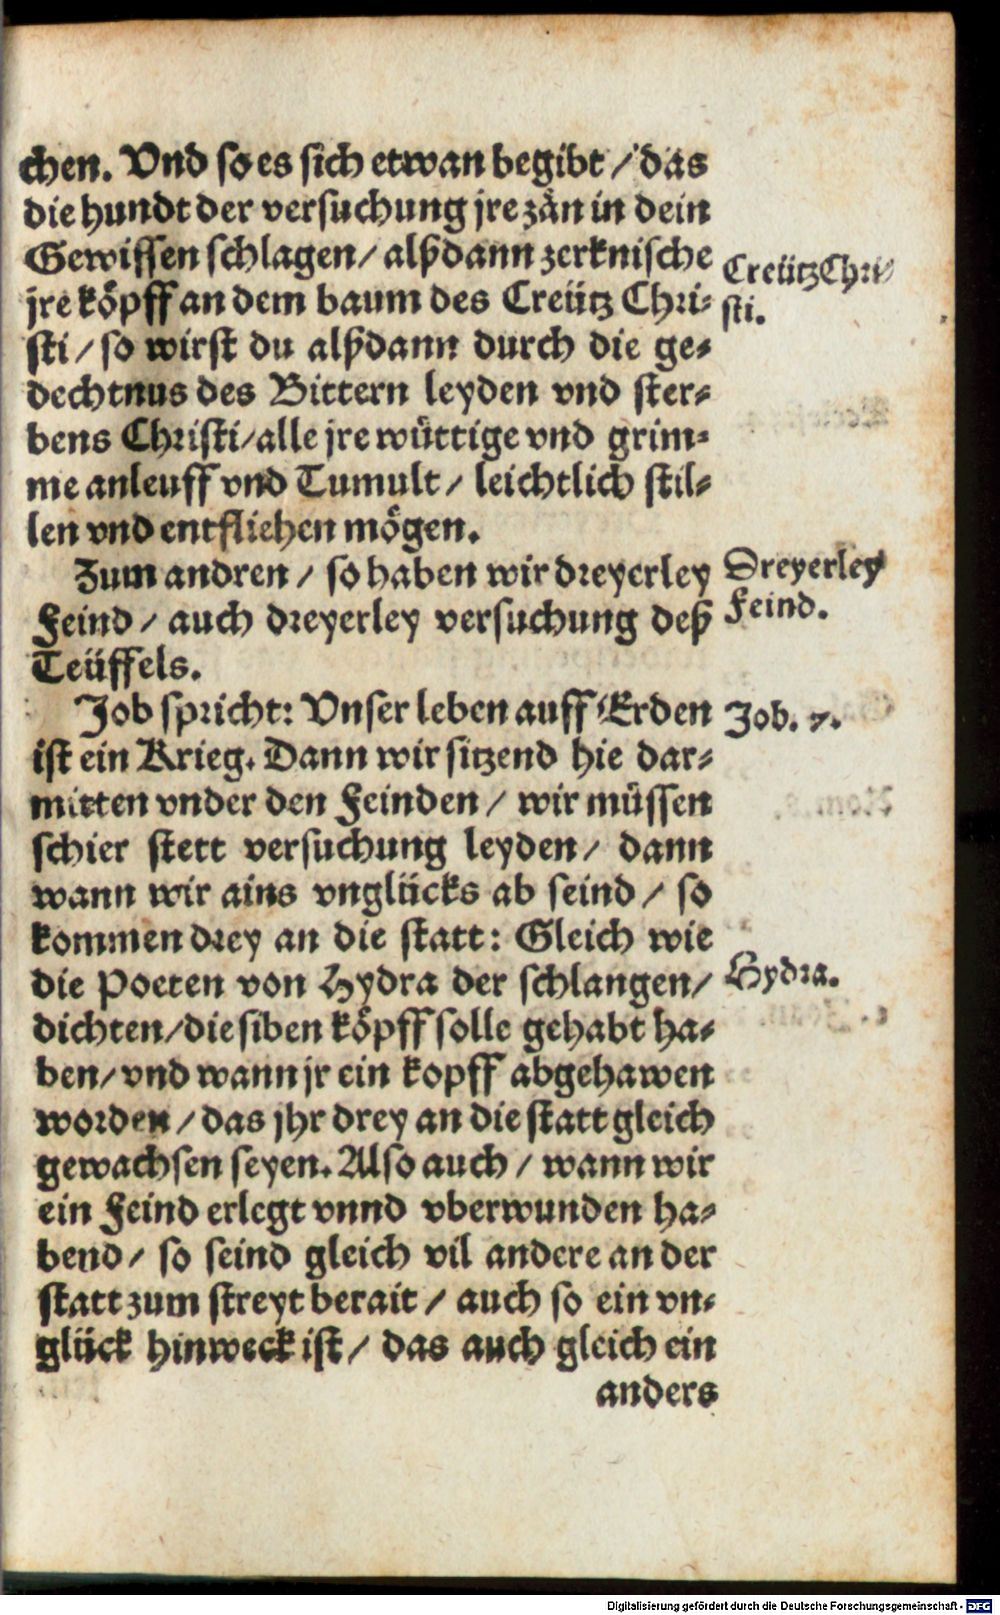 chen. Vnd so es sich etwan begibt / das
die hundt der versuchung jre zän in dein
Gewissen schlagen / alßdann zerknische
jre köpff an dem baum des Creütz Chri-
sti / so wirst du alßdann durch die ge-
dechtnus des Bittern leyden vnd ster-
bens Christi / alle jre wüttige vnd grim-
me anleuff vnd Tumult / leichtlich stil-
len vnd entfliehen mögen.
Creütz Chri-
sti.
Zum andren / so haben wir dreyerley
Feind / auch dreyerley versuchung deß
Teüffels.
Dreyerley
Feind.
Job spricht: Vnser leben auff Erden
ist ein Krieg. Dann wir sitzend hie dar-
mitten vnder den Feinden / wir müssen
schier stett versuchung leyden / dann
wann wir ains vnglücks ab seind / so
kommen drey an die statt: Gleich wie
die Poeten von Hydra der schlangen /
dichten / die siben köpff solle gehabt ha-
ben / vnd wann jr ein kopff abgehawen
worden / das jhr drey an die statt gleich
gewachsen seyen. Also auch / wann wir
ein Feind erlegt vnnd vberwunden ha-
bend / so seind gleich vil andere an der
statt zum streyt berait / auch so ein vn-
glück hinweck ist / das auch gleich ein
anders
Job. 7.
Hydra.
Digitalisierung gefördert durch die Deutsche Forschungsgemeinschaft - DFG